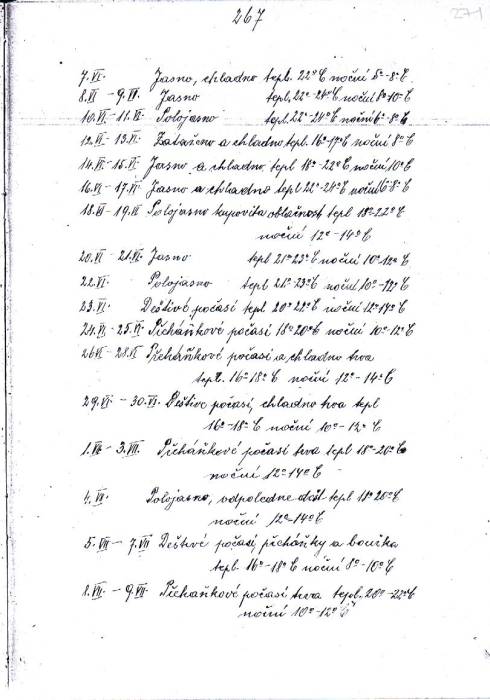 267
271
7.VI. Jasno, chladno tepl. 22°C noční 5°-8°C
8.VI - 9.VI. Jasno tepl. 22°-24°C noční 8°10°C
10.VI - 11.VI. Polojasno tepl. 22°-24°C noční 6°-8°C
12.VI - 13.VI. Zataženo a chladno tepl. 16°-17°C noční 8°C
14.VI - 15.VI. Jasno a chladno, tepl 18°-22°C noční 10°C
16.VI - 17.VI Jasno a chladno tepl 22°-24°C noční 6°8°C
18.VI - 19.VI Polojasno kupovitá oblačnost tepl 18°-22°C
noční 12°-14°C
20.VI - 21.VI Jasno tepl 21°23°C noční 10°12°C
22.VI. Polojasno tepl 21°-23°C noční 10°-12°C
23.VI. Deštivé počasí tepl 20°22°C noční 12°14°C
24.VI - 25.VI. Přeháňkové počasí 18°20°C noční 10°-12°C
26.VI - 28.VI Přeháňkové počasí a chladno trvá
tepl. 16°18°C noční 12°-14°C
29.VI - 30.VI. Deštivé počasí, chladno trvá tepl
16°-18°C noční 10°-12°C
1.VII - 3.VII. Přeháňkové počasí trvá tepl 18°-20°C
noční 12°14°C
4.VII. Polojasno, odpoledne dešť tepl 18°20°C
noční 12°-14°C
5.VII - 7.VII Deštivé počasí přeháňky a bouřka
tepl. 16°-18°C noční 8°-10°C
8.VII. - 9.VII. Přeháňkové počasí trvá tepl. 20°-22°C
noční 10°-12°C